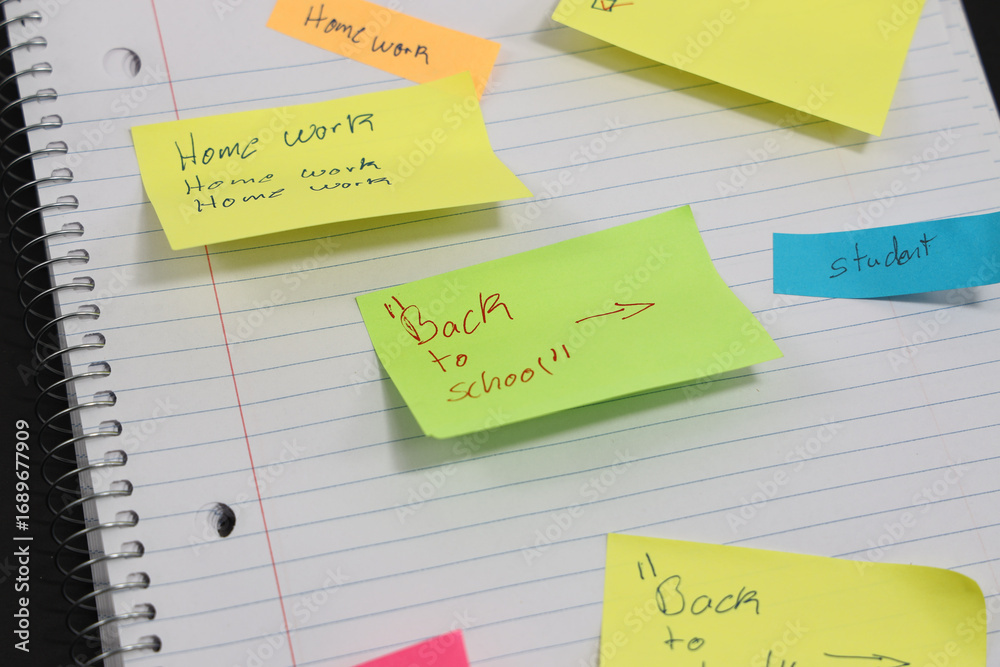 Home work
Home work
Home work
Home work
student
"Back
to
school"
"Back
to
Adobe Stock | #1689677909